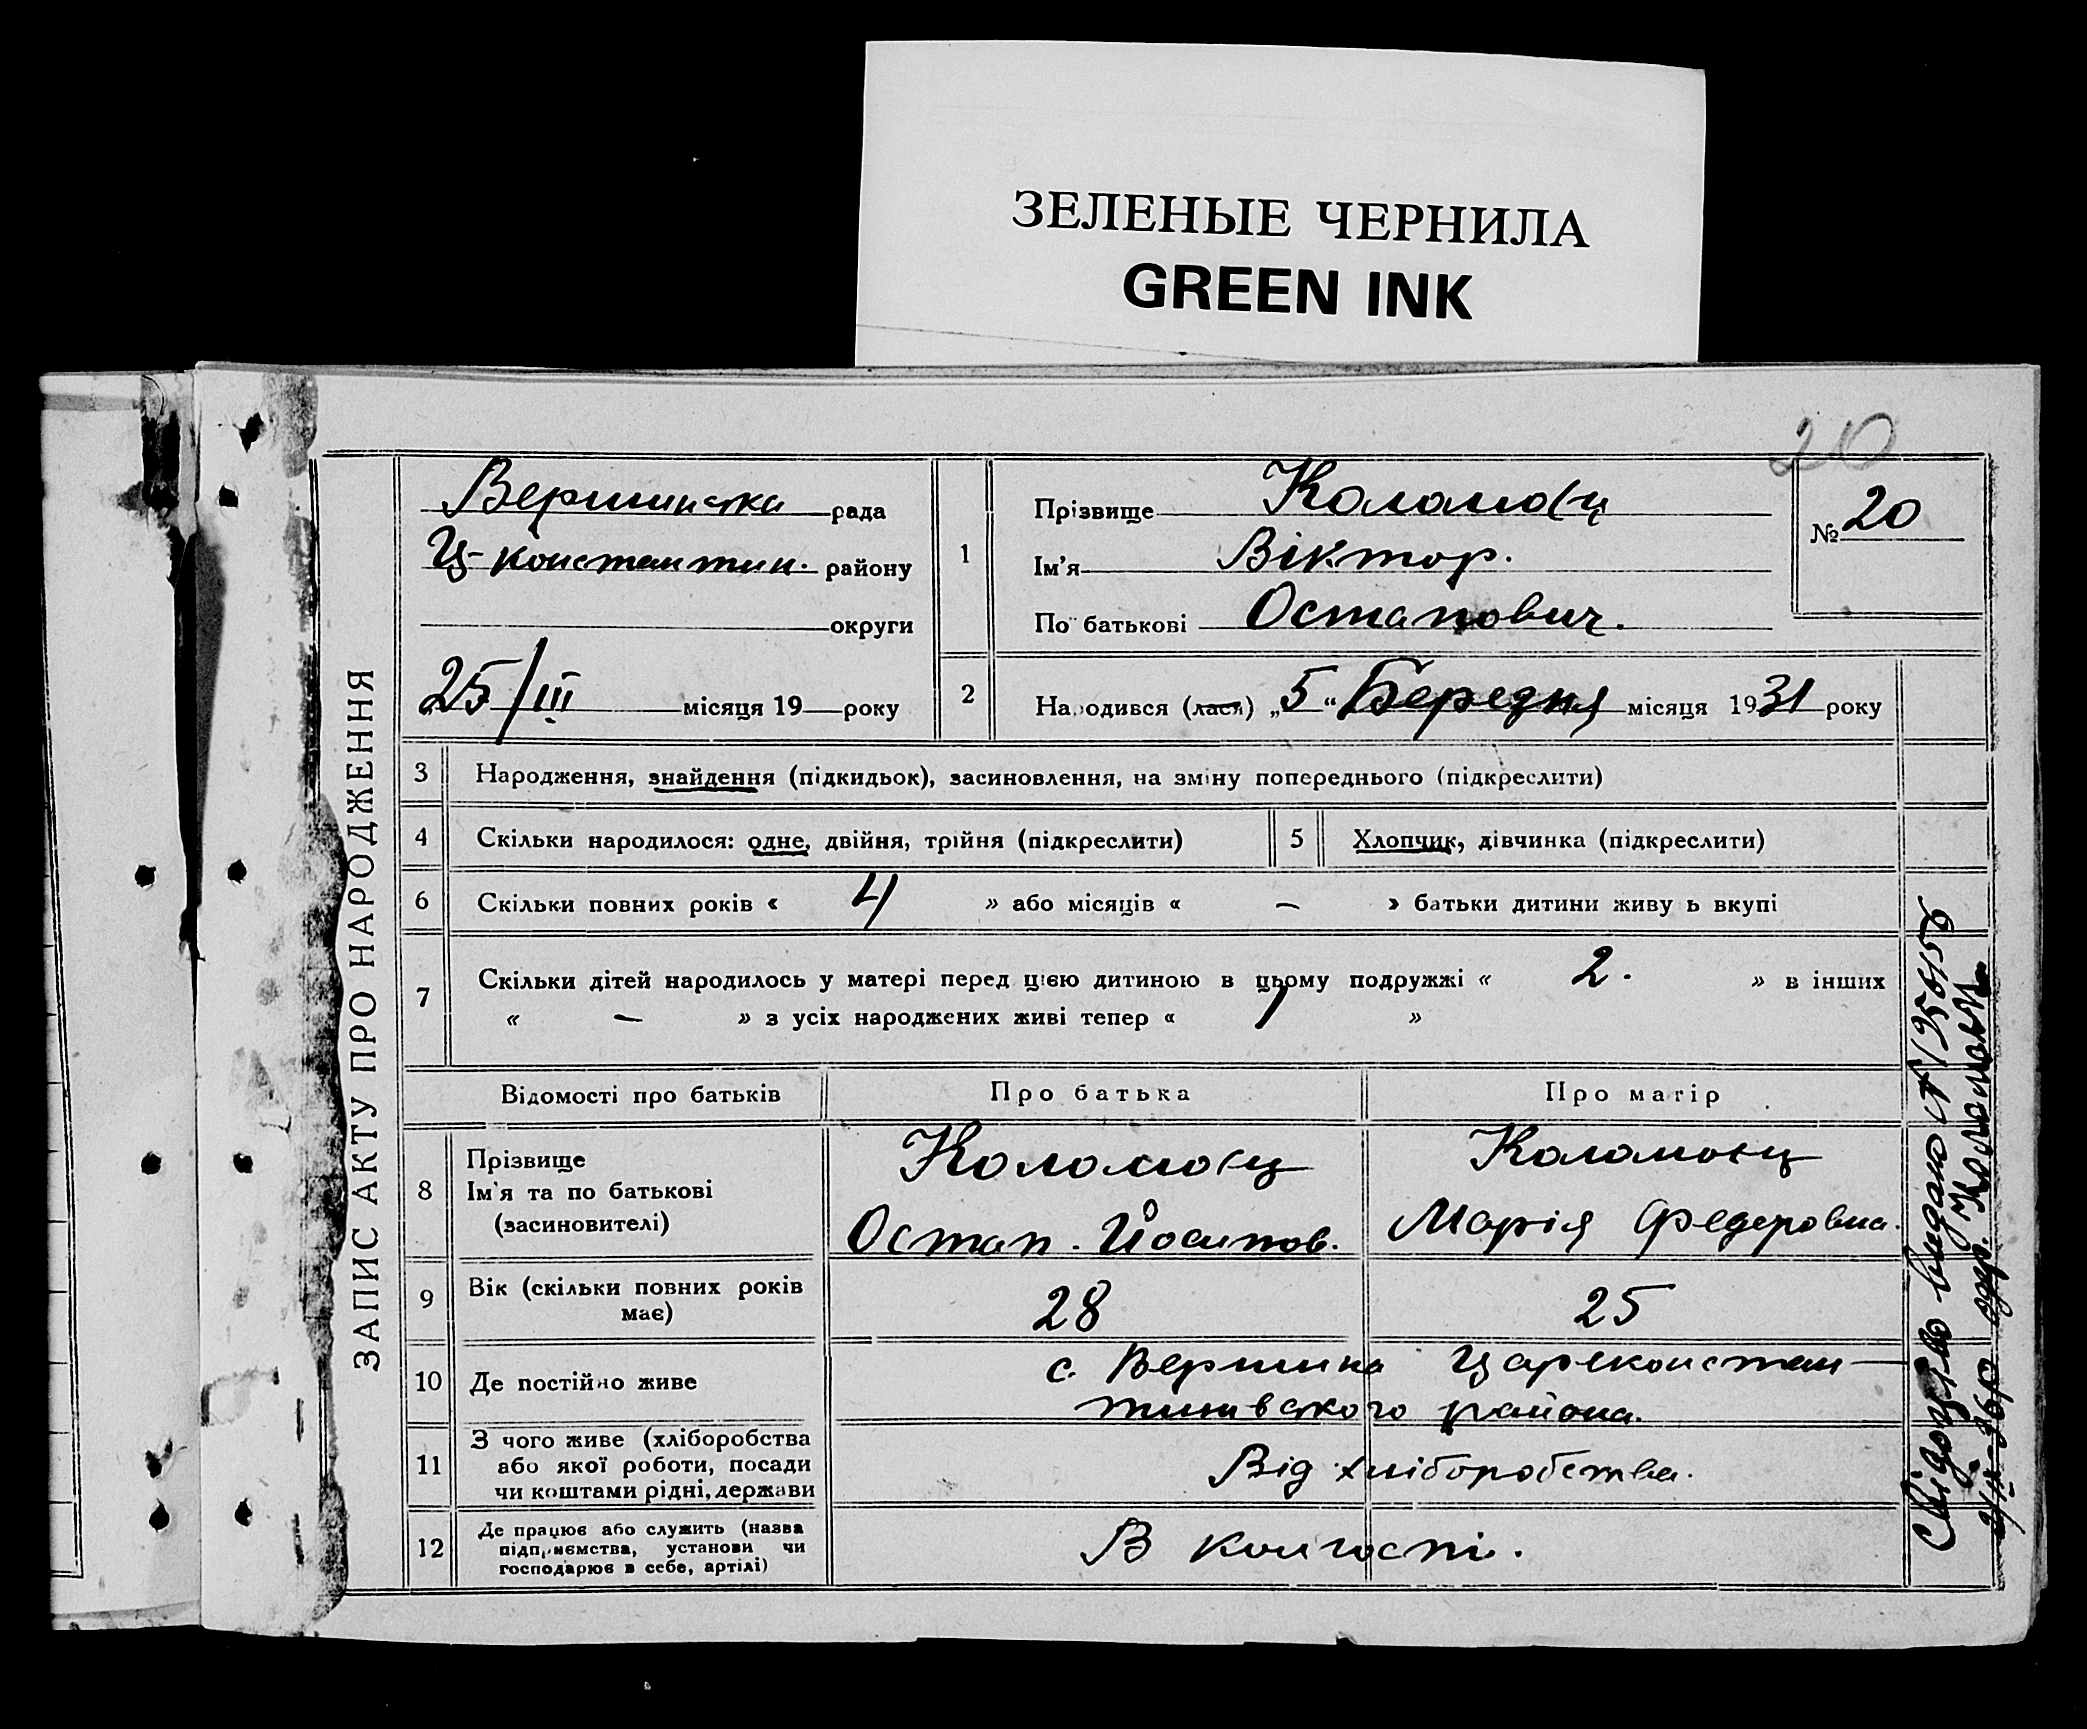 ЗЕЛЕНЫЕ ЧЕРНИЛА
GREEN INK
20
ЗАПИС АКТУ ПРО НАРОДЖЕННЯ
Вершинська рада
Ц-константин. району
округи
25/III місяця 19 року
1
Прізвище Коломоєц
Ім'я Віктор.
По батькові Остапович.
№ 20
2
Народився (лася) „5“ Березня місяця 1931 року
3 Народження, знайдення (підкидьок), засиновлення, на зміну попереднього (підкреслити)
4 Скільки народилося: одне, двійня, трійня (підкреслити)
5 Хлопчик, дівчинка (підкреслити)
6 Скільки повних років « 4 » або місяців « — » батьки дитини живу ь вкупі
7 Скільки дітей народилось у матері перед цією дитиною в цьому подружжі « 2. » в інших
« — » з усіх народжених живі тепер « 1 »
Відомості про батьків Про батька Про матір
8 Прізвище
Ім'я та по батькові
(засиновителі)
Коломоєц
Остап. Йосипов.
Коломоєц
Марія Федеровна.
9 Вік (скільки повних років
має)
28 25
10 Де постійно живе
с. Вершина Царєконстан—
тинівського района.
11 З чого живе (хліборобства
або якої роботи, посади
чи коштами рідні, держави
Від хліборобства.
12 Де працює або служить (назва
підприємства, установи чи
господарює в себе, артілі)
В колгоспі.
Свідоцтво видано
одр. Коломоєц